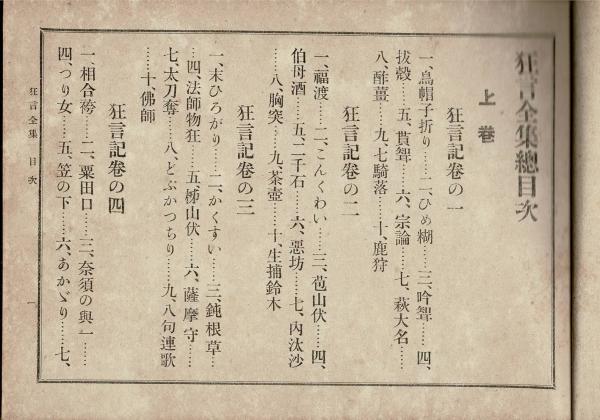 狂言全集總目次
上卷
狂言記卷の一
一、烏帽子折り……二、ひめ糊……三、吟聟……四、
拔殼……五、貰聟……六、宗論……七、萩大名……
八、酢薑……九、七騎落……十、鹿狩
狂言記卷の二
一、福渡……二、こんくわい……三、苞山伏……四、
伯母酒……五、二千石……六、惡坊……七、內汰沙
……八、胸突……九、茶壺……十、生捕鈴木
狂言記卷の三
一、末ひろがり……二、かくすい……三、鈍根草…
…四、法師物狂……五、柹山伏……六、薩摩守……
七、太刀奪……八、とぶかつちり……九、八句連歌
……十、佛師
狂言記卷の四
一、相合袴……二、粟田口……三、奈須の與一……
四、つり女……五、笠の下……六、あかゞり……七、
狂言全集 目次
一